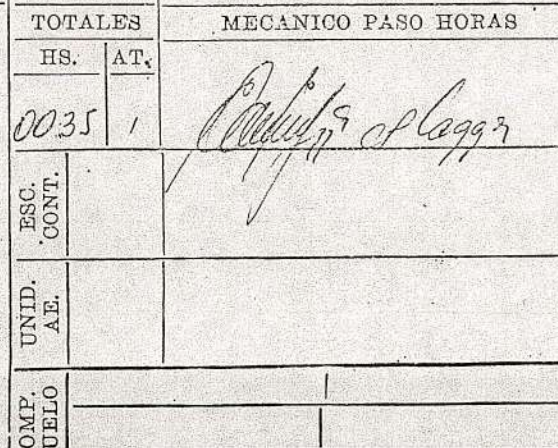 TOTALES MECANICO PASO HORAS
HS. AT.
0035 1
ESC. CONT.
UNID. AE.
OMP. UELO